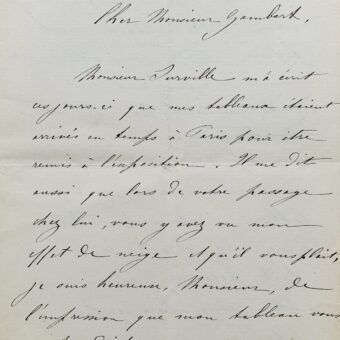 Cher Monsieur Gambart,
Monsieur Surville m'a écrit
ces jours-ci que mes tableaux étaient
arrivés en temps à Paris pour être
remis à l'exposition. Il me dit
aussi que lors de votre passage
chez lui, vous y avez vu mon
effet de neige et qu'il vous plait,
je suis heureuse, Monsieur, de
l'impression que mon tableau vous